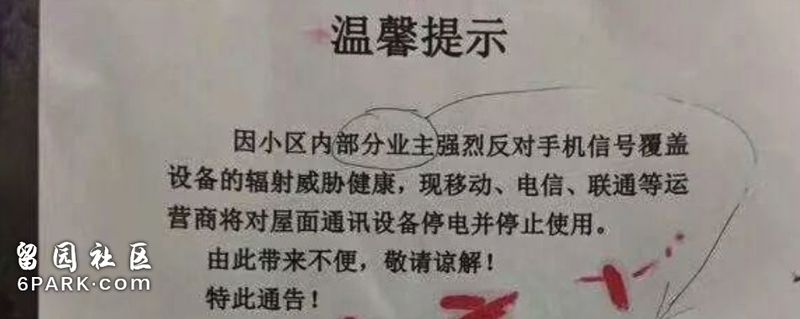 温馨提示
因小区内部分业主强烈反对手机信号覆盖
设备的辐射威胁健康，现移动、电信、联通等运
营商将对屋面通讯设备停电并停止使用。
由此带来不便，敬请谅解！
特此通告！
留园社区
6PARK.COM